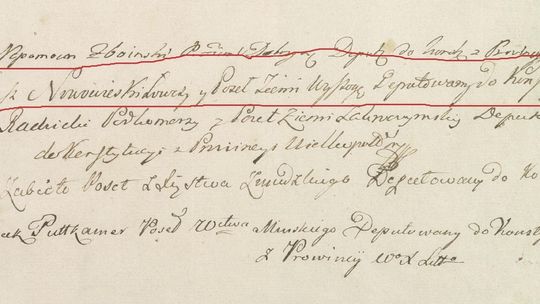 Nepomucen Zboinski Poseł Z Dobrzyn Deput do Konst z Prowin
Nowowieski Łowczy y Poseł Ziemi Wyszog Deputowany do Kons
Radzicki Podkomorzy z Poseł Ziemi Zakroczymskiey Deput
do Konstytucyi z Prowincyi Wielkopols
Zabiełło Poseł z Xięstwa Żmudzkiego Deputowany do Ko
Puttkamer Poseł Wctwa Minskiego Deputowany do Konsty
z Prowincÿ Wo X Litto